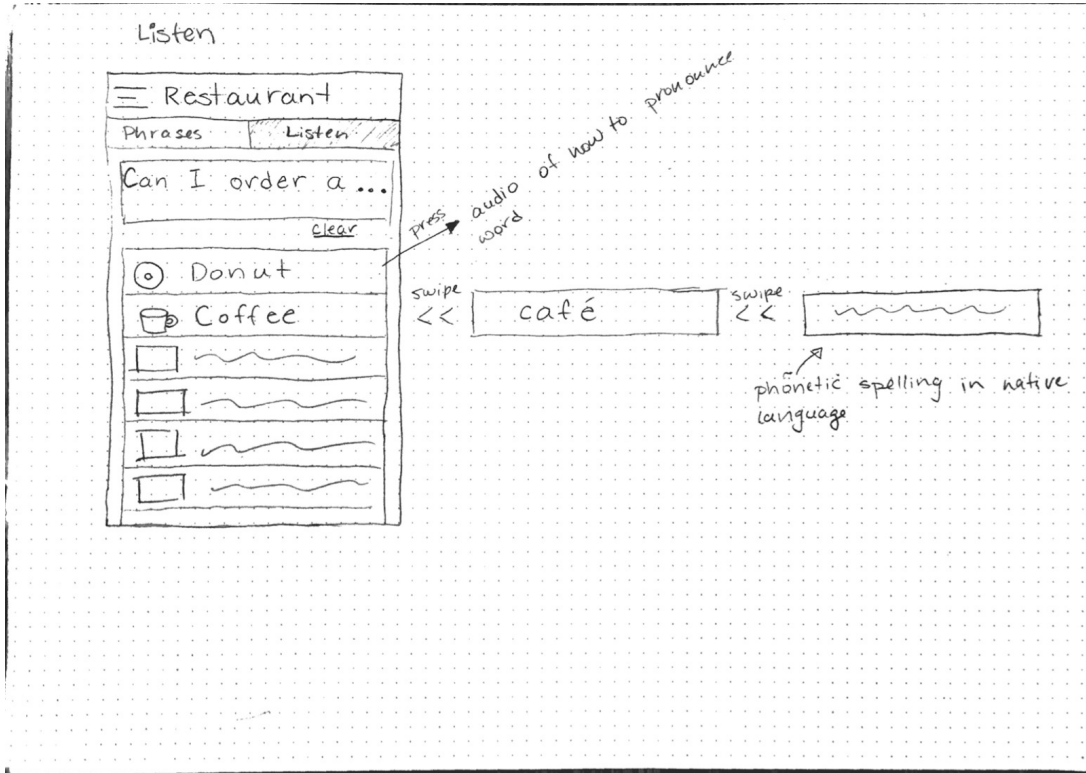 Listen
Restaurant
Phrases
Listen
Can I order a ...
clear
press
audio of how to pronounce
word
Donut
Coffee
swipe
<<
café
swipe
<<
phonetic spelling in native
language